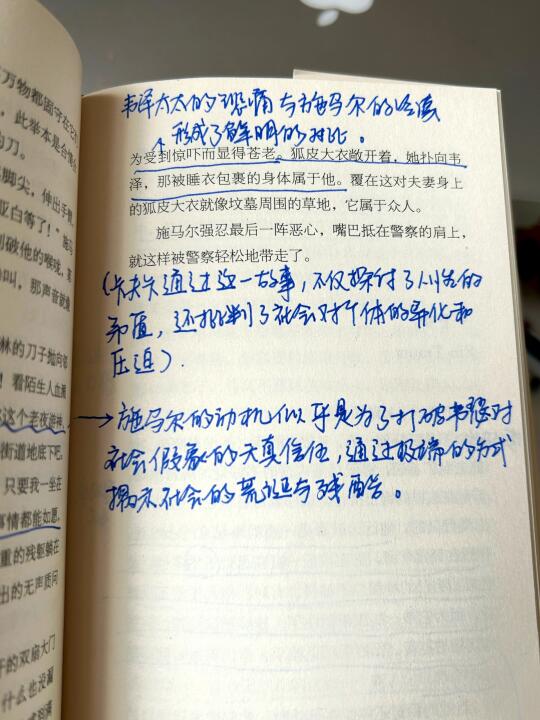 万物都固守在它
，此举本是合
的刀。
脚尖，伸出手臂
亚白等了！"施马
刺破他的喉咙，直
叫，那声音就像
林的刀子抛向
！看陌生人血流
这个老夜游神
街道地底下吧。
只要我一坐在
事情都能如愿，
重的残躯躺在
出的无声质问
开的双扇大门
什么也没漏
韦泽太太的悲痛与施马尔的冷漠
形成了鲜明的对比。
为受到惊吓而显得苍老。狐皮大衣敞开着，她扑向韦
泽，那被睡衣包裹的身体属于他。覆在这对夫妻身上
的狐皮大衣就像坟墓周围的草地，它属于众人。
施马尔强忍最后一阵恶心，嘴巴抵在警察的肩上，
就这样被警察轻松地带走了。
(卡夫卡通过这一故事，不仅探讨了人性的
，还批判了社会对个体的异化和
压迫).
→施马尔的动机似乎是为了打破韦泽对
社会假象的天真信任，通过极端的方式
揭示社会的荒诞与残酷。